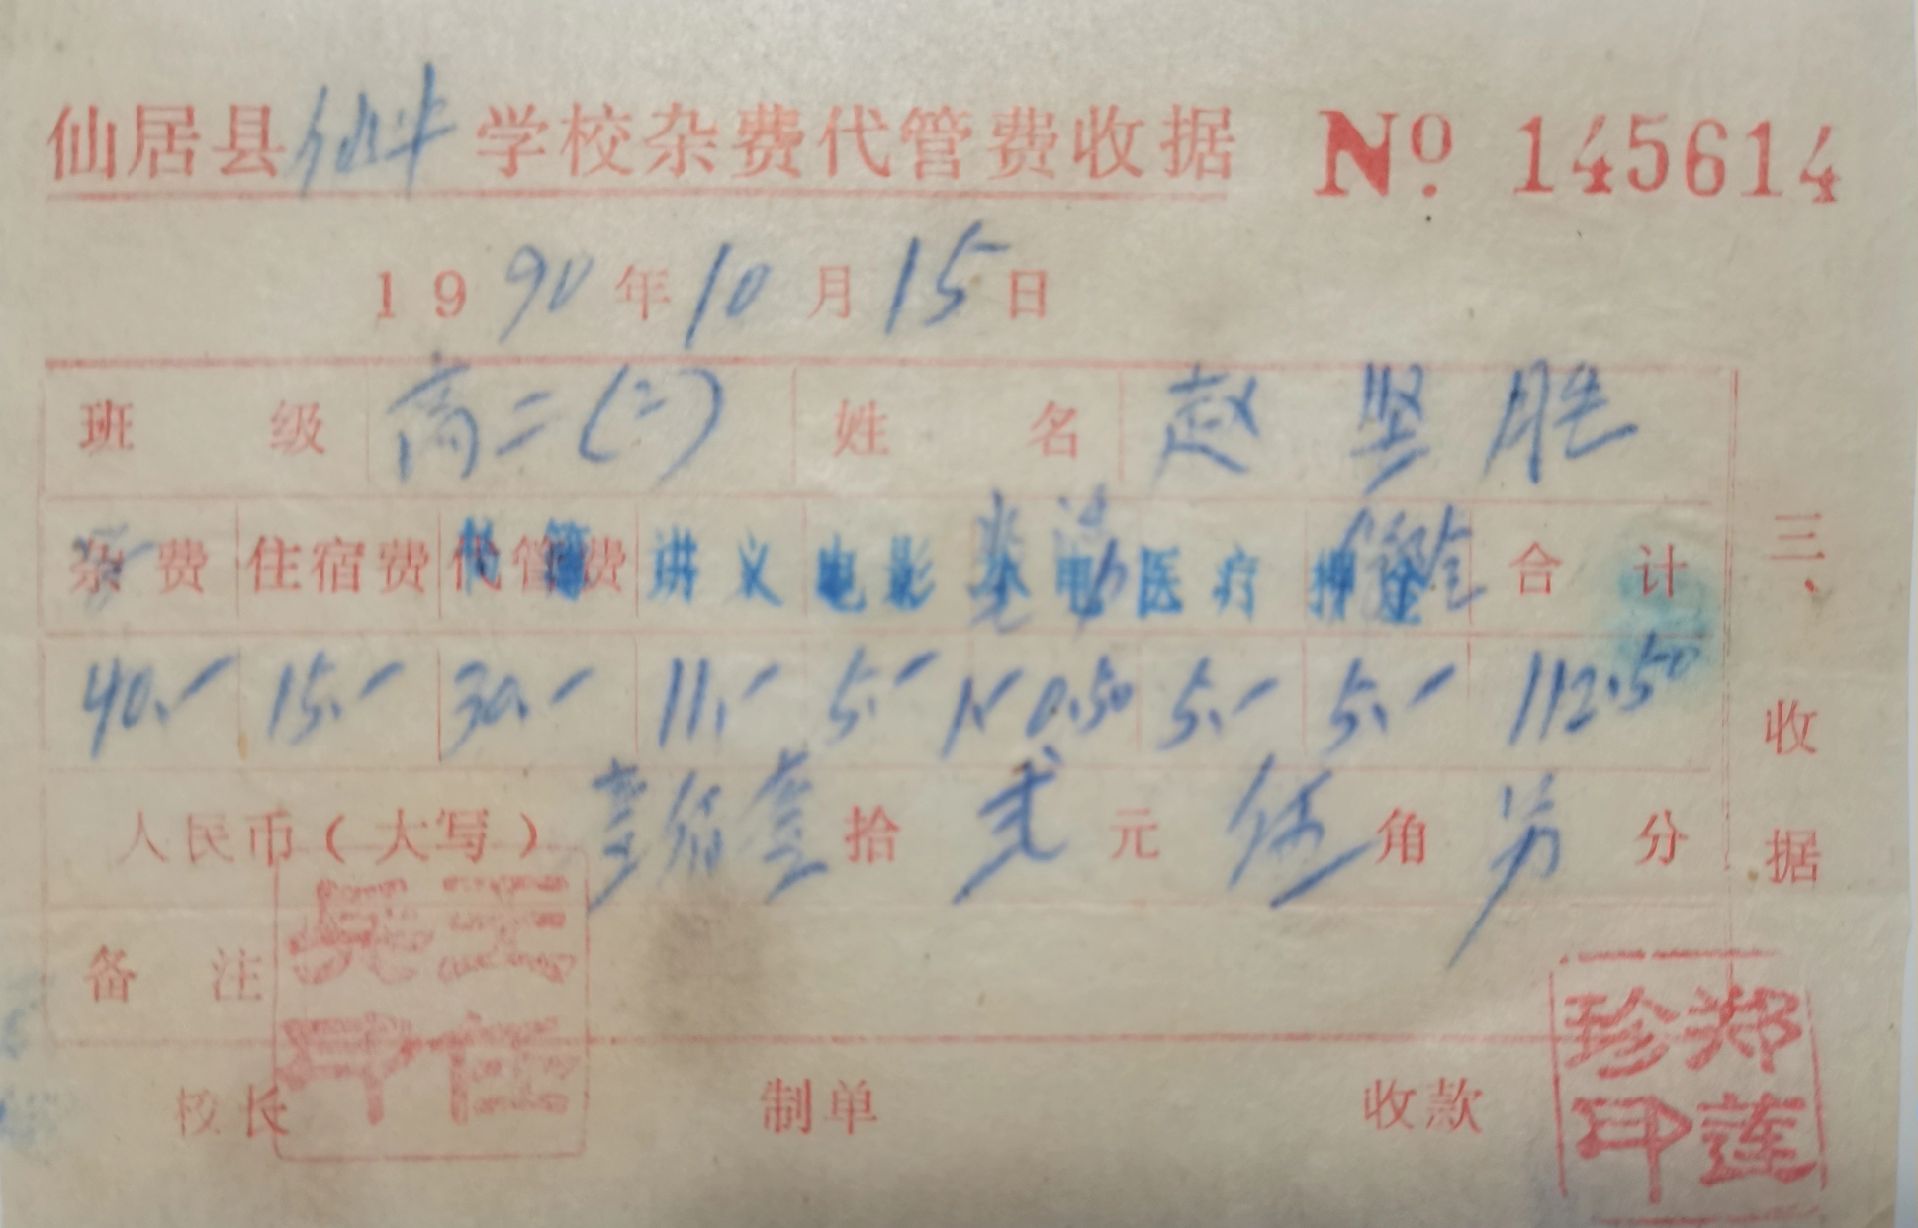 仙居县仙中学校杂费代管费收据 No. 145614
1990年10月15日
班 级 高二(二) 姓 名 赵坚胜
杂费 住宿费 代管费 讲义 电影 水电 医疗 押金 合计
40.- 15.- 30.- 11.- 5.- 1.- 0.50 5.- 5.- 112.50
人民币(大写) 壹佰壹拾贰元伍角 分
备 注
校长 制单 收款
郑莲珍印
三、收据